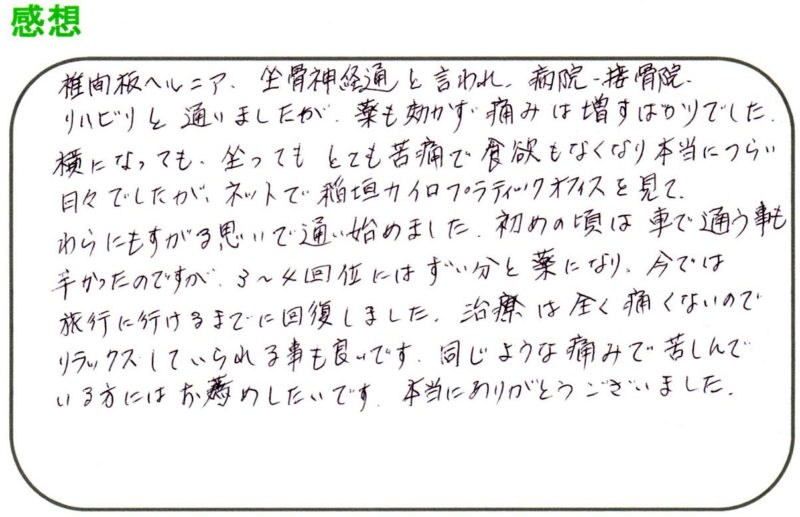 感想
椎間板ヘルニア、坐骨神経通と言われ、病院-接骨院、
リハビリと通いましたが、薬も効かず痛みは増すばかりでした。
横になっても、坐ってもとても苦痛で食欲もなくなり本当につらい
日々でしたが、ネットで稲垣カイロプラティックオフィスを見て、
わらにもすがる思いで通い始めました。初めの頃は車で通う事も
辛かったのですが、3～4回位にはずい分と薬になり、今では
旅行に行けるまでに回復しました。治療は全く痛くないので
リラックスしていられる事も良いです。同じような痛みで苦しんで
いる方にはお薦めしたいです。本当にありがとうございました。